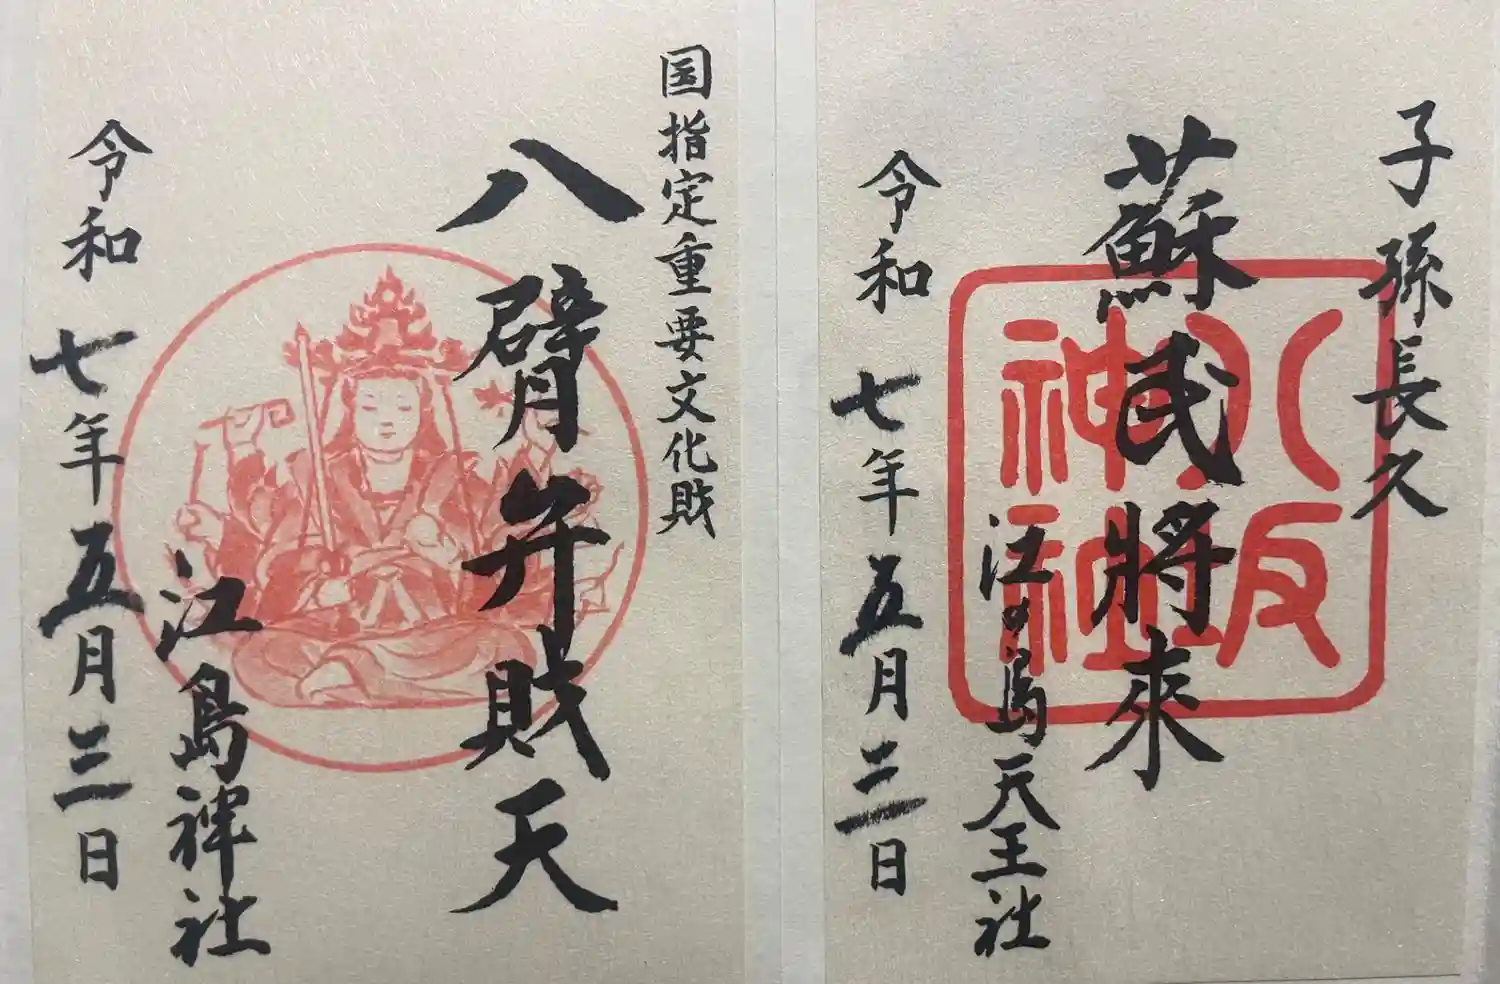 子孫長久
蘇民將來
江の島天王社
令和七年五月三日
八坂神社
国指定重要文化財
八臂弁財天
江島神社
令和七年五月三日